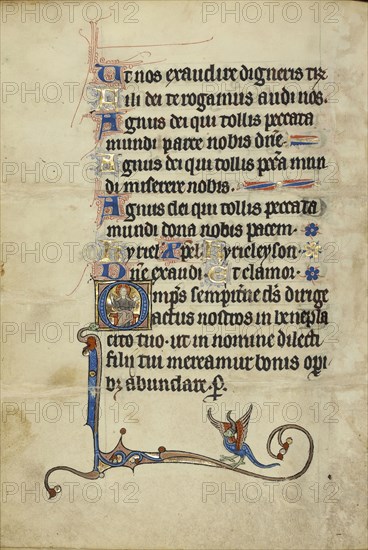 Ut nos exaudire digneris te r̃
Fili dei te rogamus audi nos.
Agnus dei qui tollis peccata
mundi parce nobis dñe.
Agnus dei qui tollis pccã mun
di miserere nobis.
Agnus dei qui tollis peccata
mundi dona nobis pacem.
Kyriel. Xp̃el. Kyrieleyson.
Dñe exaudi. Et clamor.
Omp̃s sempit̃ne d̃s dirige
actus nostros in benepla
cito tuo. ut in nomine dilecti
filii tui mereamur bonis opi
bȝ abundare. P.
PHOTO12